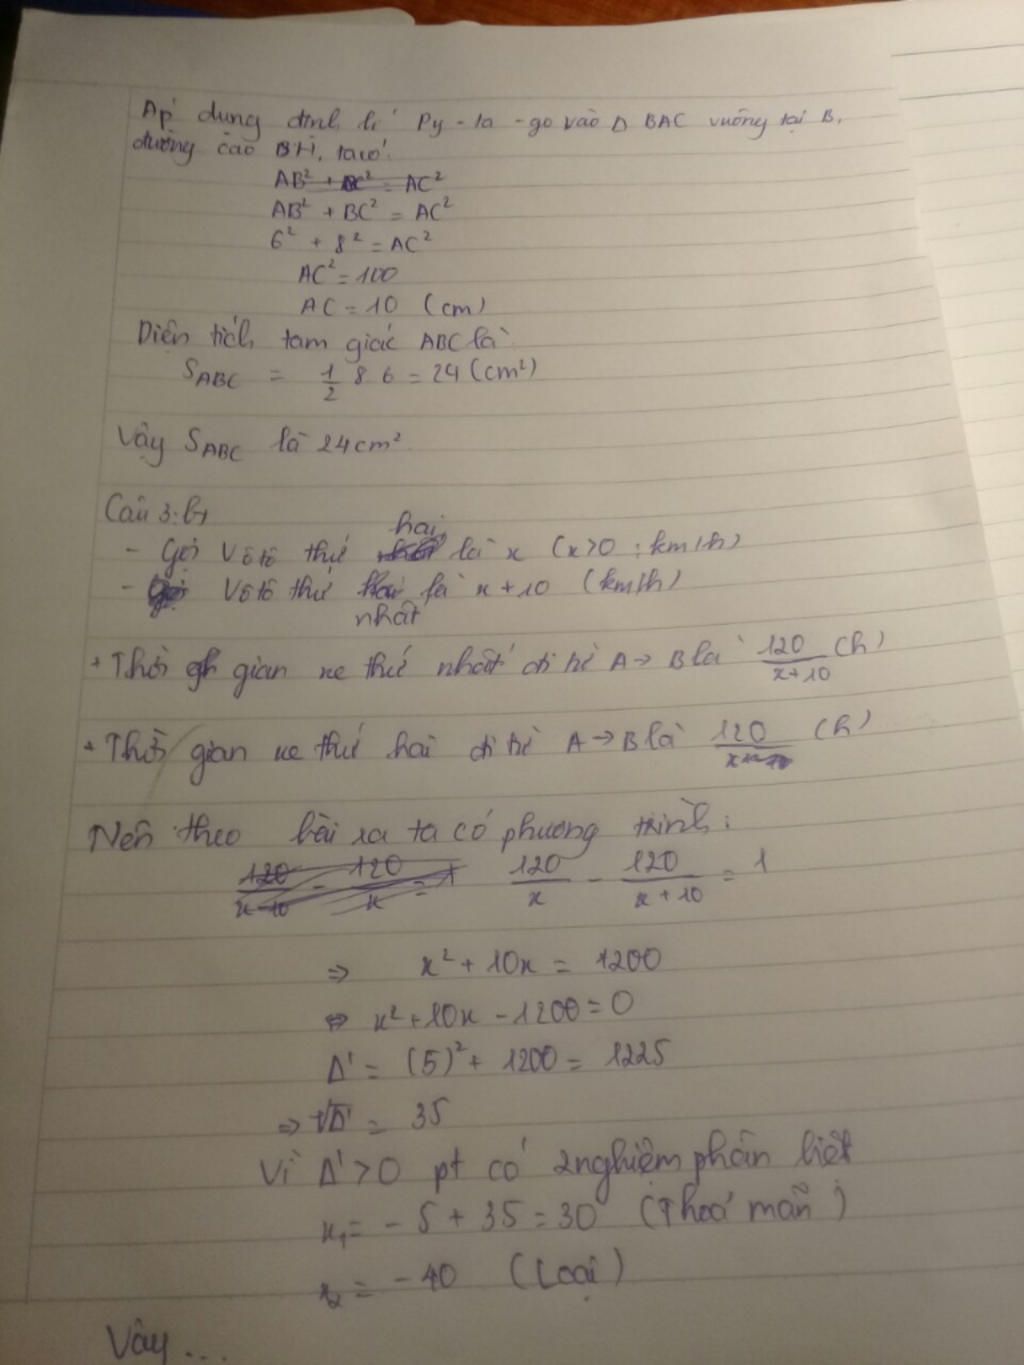 Áp dụng định lí Py-ta-go vào Δ BAC vuông tại B,
đường cao BH, ta có:
AB² + BC² = AC²
AB² + BC² = AC²
6² + 8² = AC²
AC² = 100
AC = 10 (cm)
Diện tích tam giác ABC là
S_ABC = 1/2 8 . 6 = 24 (cm²)
Vậy S_ABC là 24cm²
Câu 3: b,
hai
- Gọi V ô tô thứ là x (x>0 ; km/h)
- V ô tô thứ hai là x+10 (km/h)
nhất
+ Thời gian xe thứ nhất đi từ A → B là 120/(x+10) (h)
+ Thời gian xe thứ hai đi từ A → B là 120/x (h)
Nên theo bài ra ta có phương trình:
120/(x-10) - 120/x = 1 120/x - 120/(x+10) = 1
⇒ x² + 10x = 1200
⇔ x² + 10x - 1200 = 0
Δ' = (5)² + 1200 = 1225
⇒ √Δ' = 35
Vì Δ' > 0 pt có 2 nghiệm phân biệt
x₁ = -5 + 35 = 30 (Thoả mãn)
x₂ = -40 (Loại)
Vậy ...